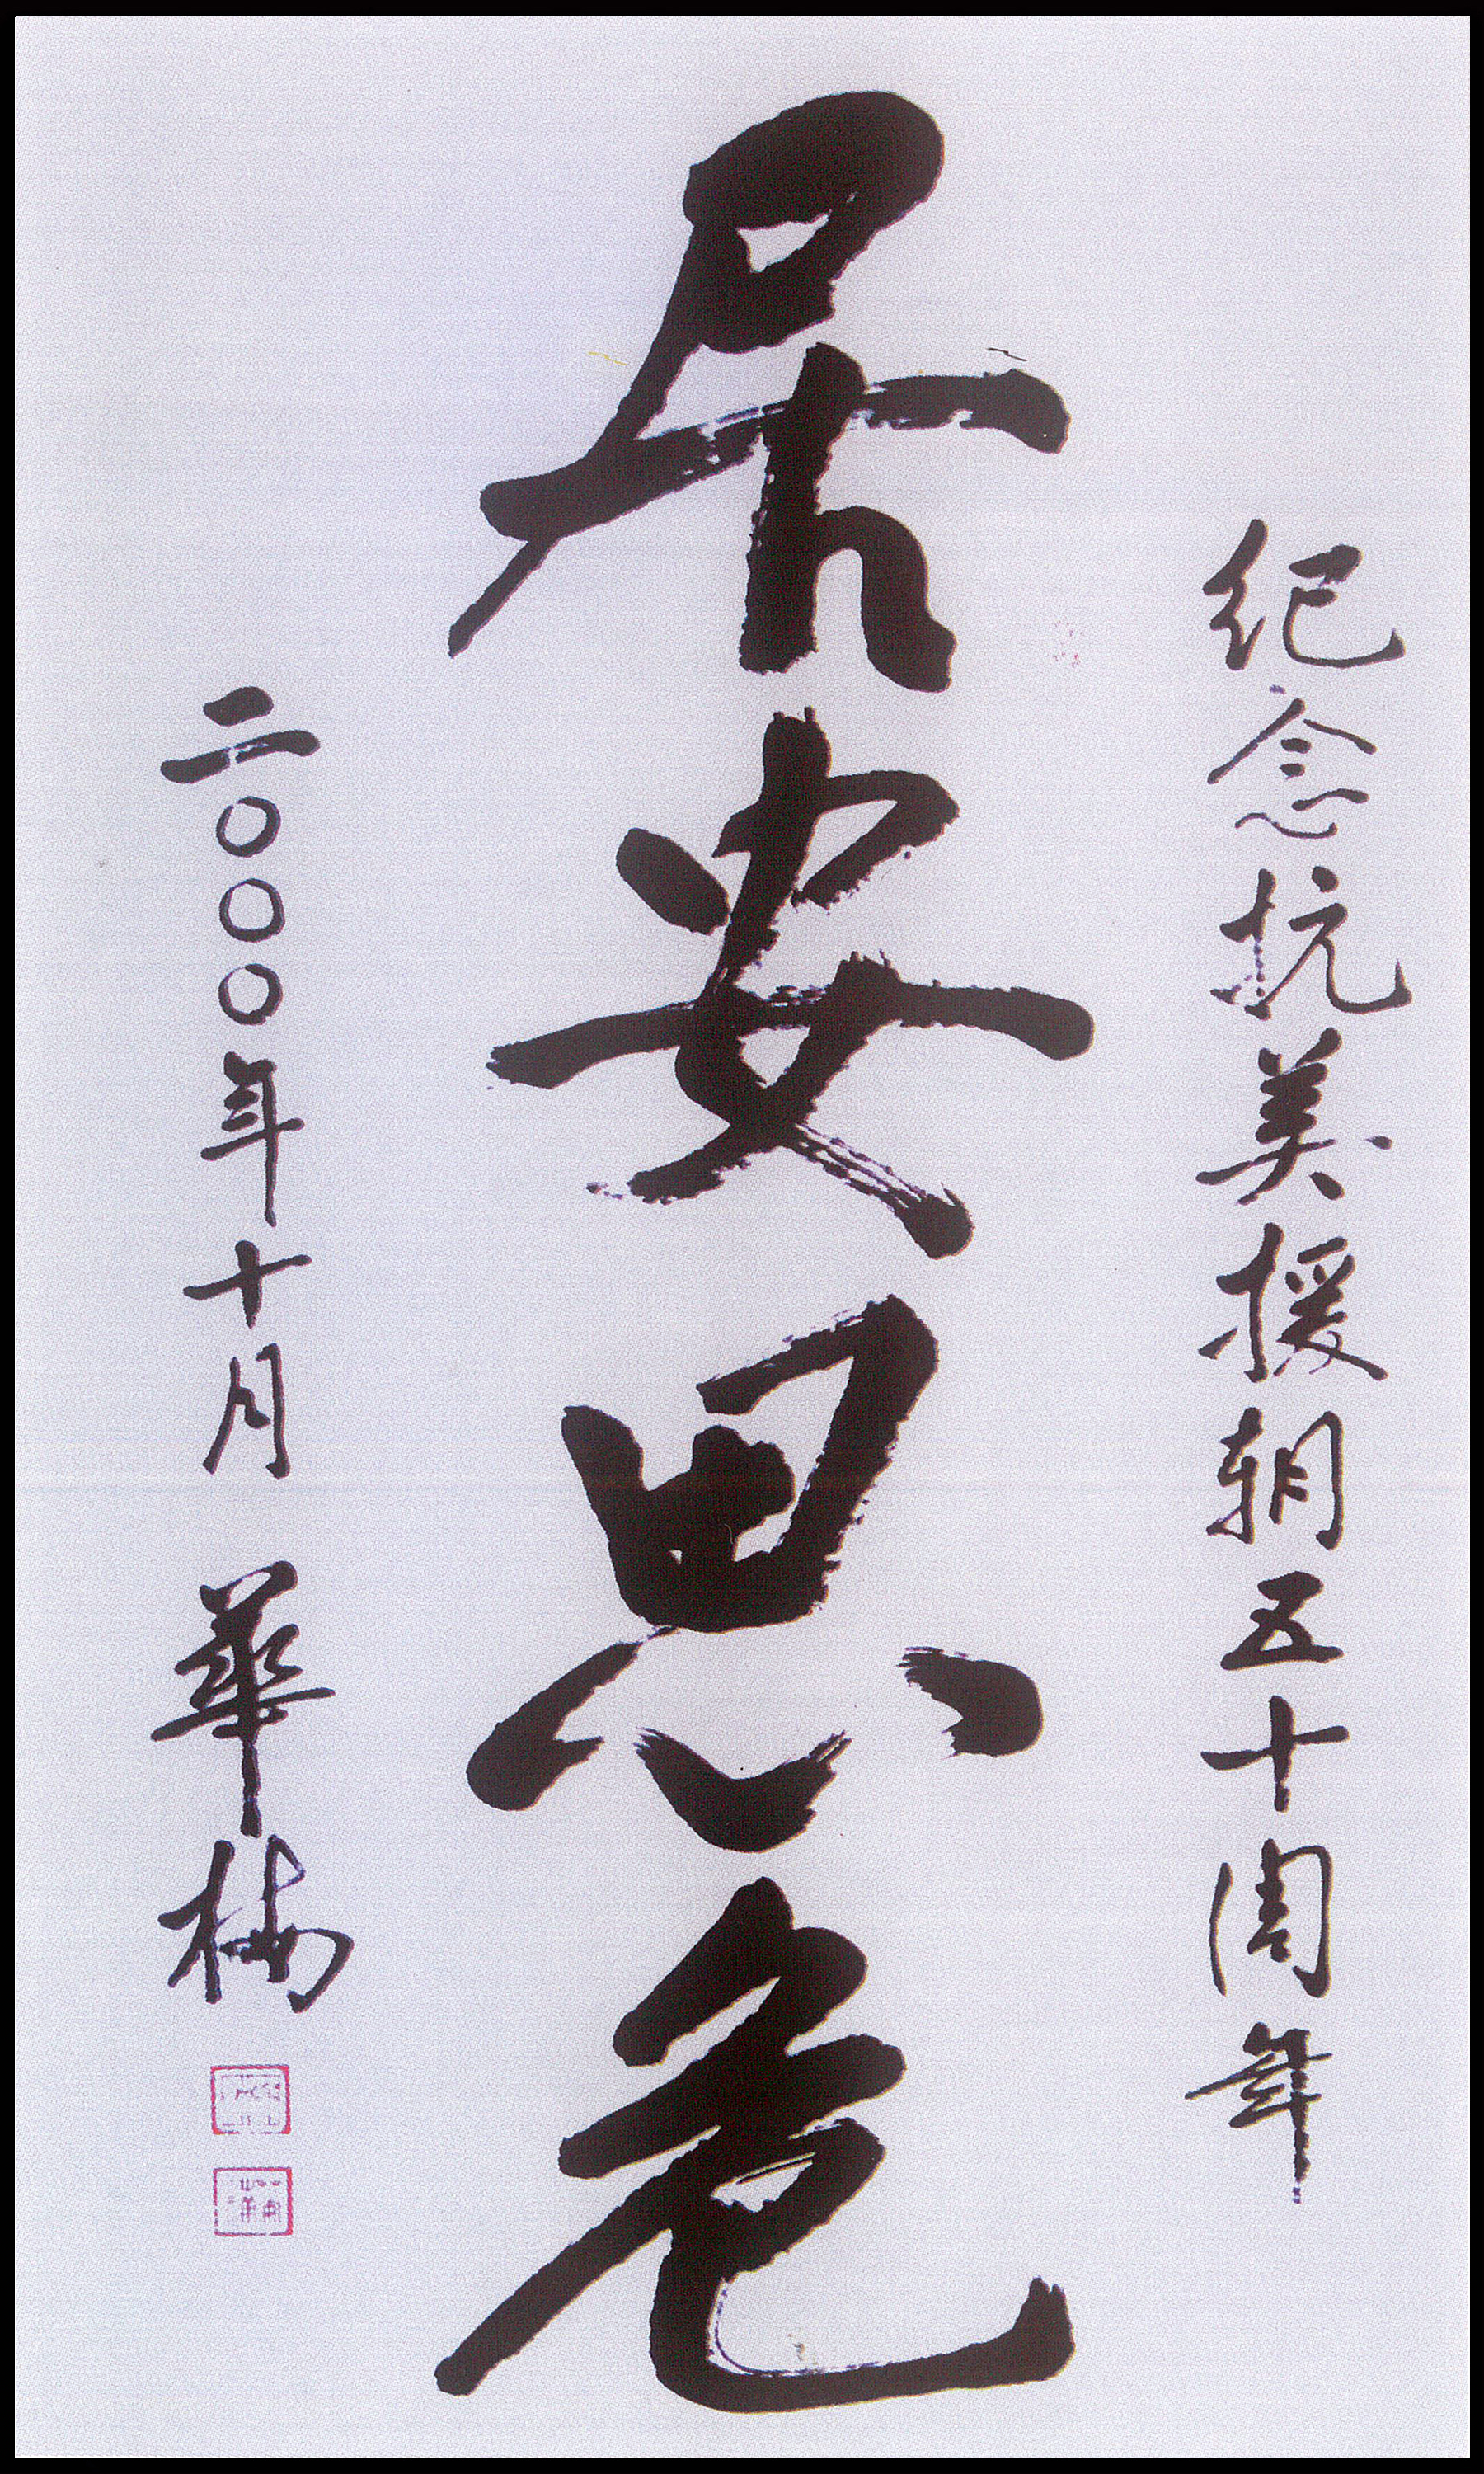 纪念抗美援朝五十周年
居安思危
二〇〇〇年十月 華楠